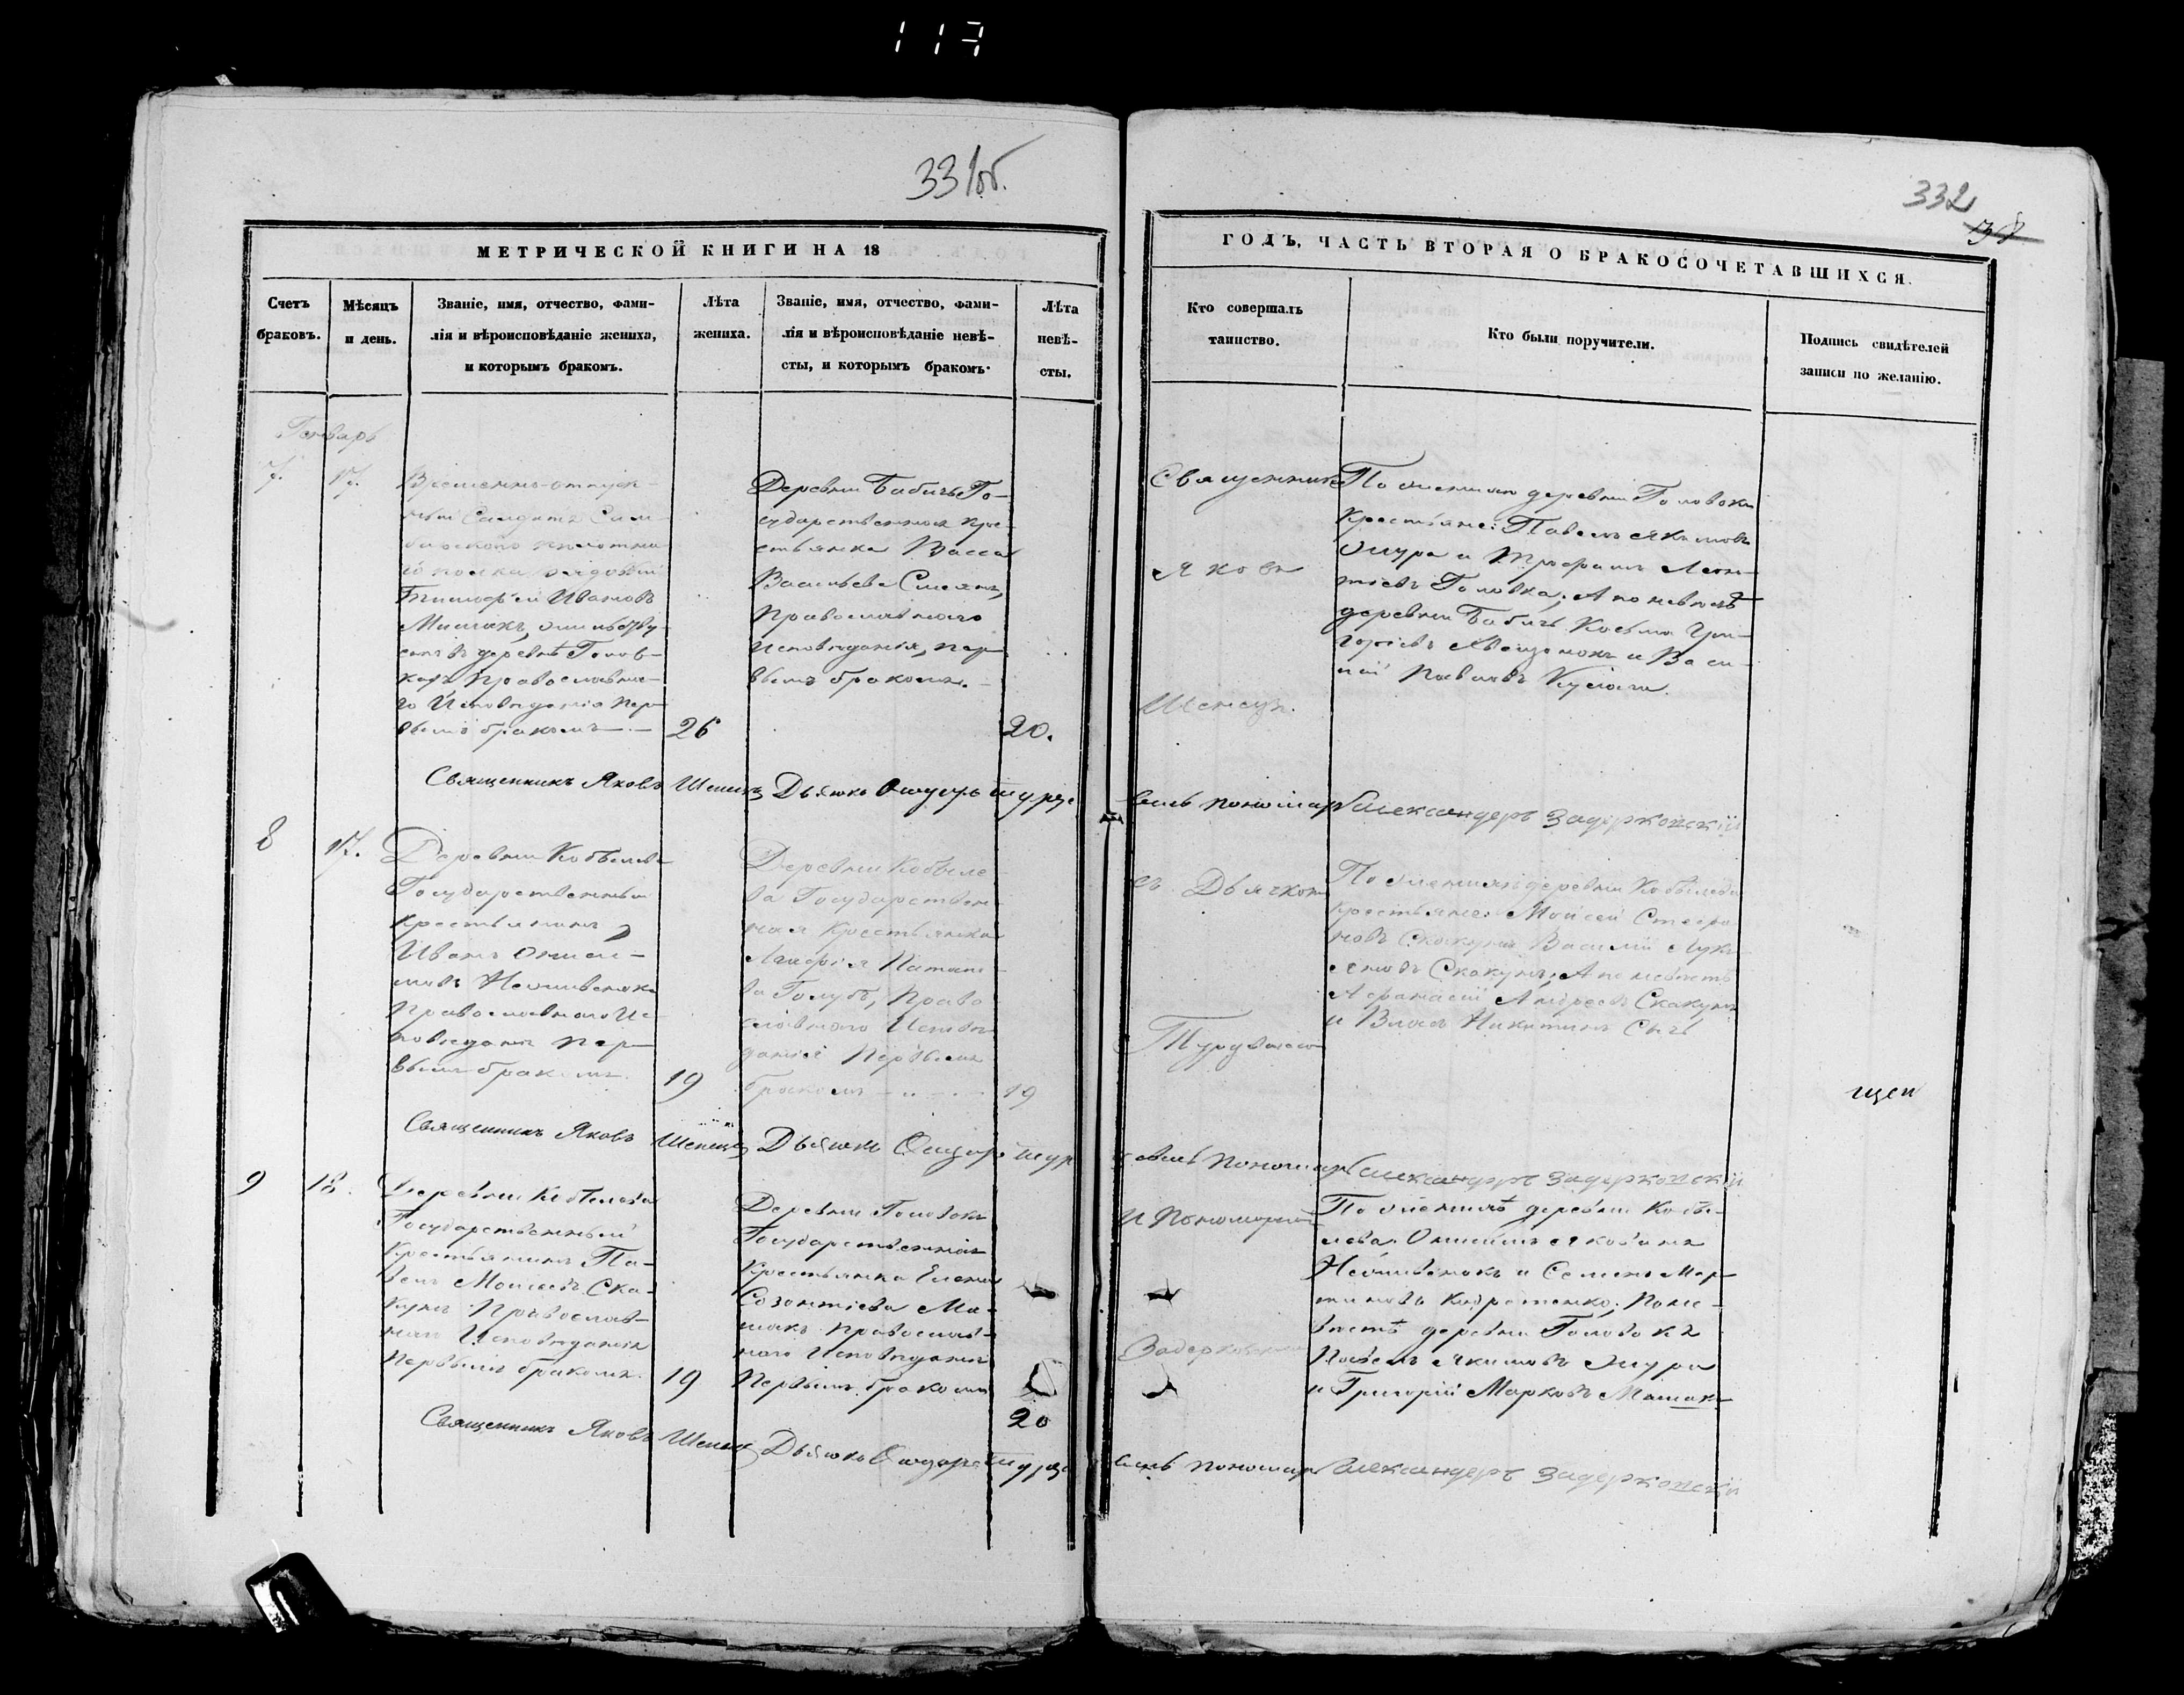 117
331об.
332
38
МЕТРИЧЕСКОЙ КНИГИ НА 18
ГОДЪ, ЧАСТЬ ВТОРАЯ О БРАКОСОЧЕТАВШИХСЯ.
Счетъ браковъ.
Мѣсяцъ и день.
Званіе, имя, отчество, фами-
лія и вѣроисповѣданіе жениха,
и которымъ бракомъ.
Лѣта жениха.
Званіе, имя, отчество, фами-
лія и вѣроисповѣданіе невѣ-
сты, и которымъ бракомъ.
Лѣта
невѣ-
сты.
Кто совершалъ
таинство.
Кто были поручители.
Подпись свидѣтелей
записи по желанію.
Генварь
7.
17.
Временно-отпуск-
ной Солдатъ
полка рядовый
Тимофей Ивановъ
въ деревнѣ Голов-
кахъ Православна-
го Исповѣданія пер-
вымъ бракомъ
26
Деревни Бабичь Го-
сударственная кре-
стьянка Васса
Васильева
Православнаго
Исповѣданія, пер-
вымъ бракомъ.
20.
Священникъ
Яковъ
Шепецъ.
По женихѣ деревни Головокъ
Крестьяне: Павелъ Якимовъ
и Трофимъ Леон-
тіевъ Головка; А по невѣстѣ
деревни Бабичь Косьма Гри-
горіевъ и Васи-
лій Павловъ
Священникъ Яковъ Шепецъ Дьячокъ
Пономарь Александеръ Задеркопскій
8
17.
Деревни Кобылева
Государственный
Крестьянинъ
Иванъ
Православнаго Ис-
повѣданія пер-
вымъ бракомъ
19
Деревни Кобыле-
ва Государствен-
ная Крестьянка
Голубъ, Право-
славнаго Исповѣ-
данія Первымъ
бракомъ
19
съ Дьячкомъ
По женихѣ деревни Кобылева
крестьяне: Моисей Стефа-
новъ Скакунъ Василій Лукь-
яновъ Скакунъ; А по невѣстѣ
Афанасій Андреевъ Скакунъ
и Власъ Никитинъ Сычъ
щеи
Священникъ Яковъ Шепецъ Дьячокъ
Пономарь Александеръ Задеркопскій
9
18.
Деревни Кобылева
Государственный
Крестьянинъ Па-
велъ Моисеевъ Ска-
кунъ Православ-
наго Исповѣданія
Первымъ бракомъ.
19
Деревни Головокъ
Государственная
Крестьянка Елена
Созонтіева Ма-
шакъ православ-
наго Исповѣданія
Первымъ бракомъ
20
и Пономаремъ
Задеркопскимъ
По женихѣ деревни Кобы-
лева.
и Семенъ Мар-
тиновъ Кодратенко; По не-
вѣстѣ деревни Головокъ
Павелъ Якимовъ
и Григорій Марковъ Машакъ
Священникъ Яковъ Шепецъ Дьячокъ
Пономарь Александеръ Задеркопскій